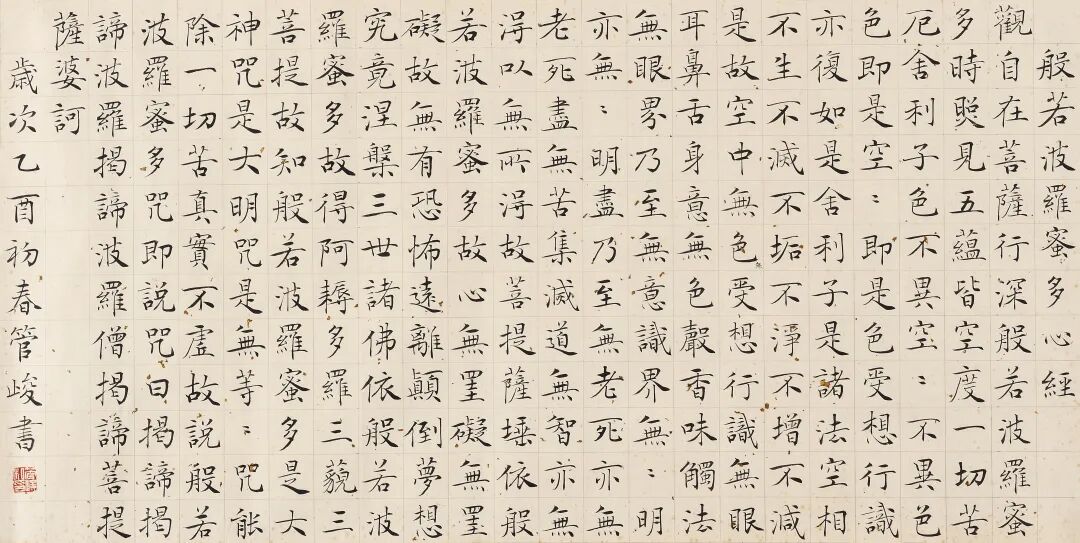 般若波羅蜜多心經
觀自在菩薩行深般若波羅蜜
多時照見五蘊皆空度一切苦
厄舍利子色不異空〻不異色
色即是空〻即是色受想行識
亦復如是舍利子是諸法空相
不生不滅不垢不淨不增不減
是故空中無色無受想行識無眼
耳鼻舌身意無色聲香味觸法
無眼界乃至無意識界無〻明
亦無〻明盡乃至無老死亦無
老死盡無苦集滅道無智亦無
淂以無所淂故菩提薩埵依般
若波羅蜜多故心無罣礙無罣
礙故無有恐怖遠離顛倒夢想
究竟涅槃三世諸佛依般若波
羅蜜多故得阿耨多羅三藐三
菩提故知般若波羅蜜多是大
神咒是大明咒是無等〻咒能
除一切苦真實不虛故說般若
波羅蜜多咒即説咒曰揭諦揭
諦波羅揭諦波羅僧揭諦菩提
薩婆訶
歲次乙酉初春管峻書